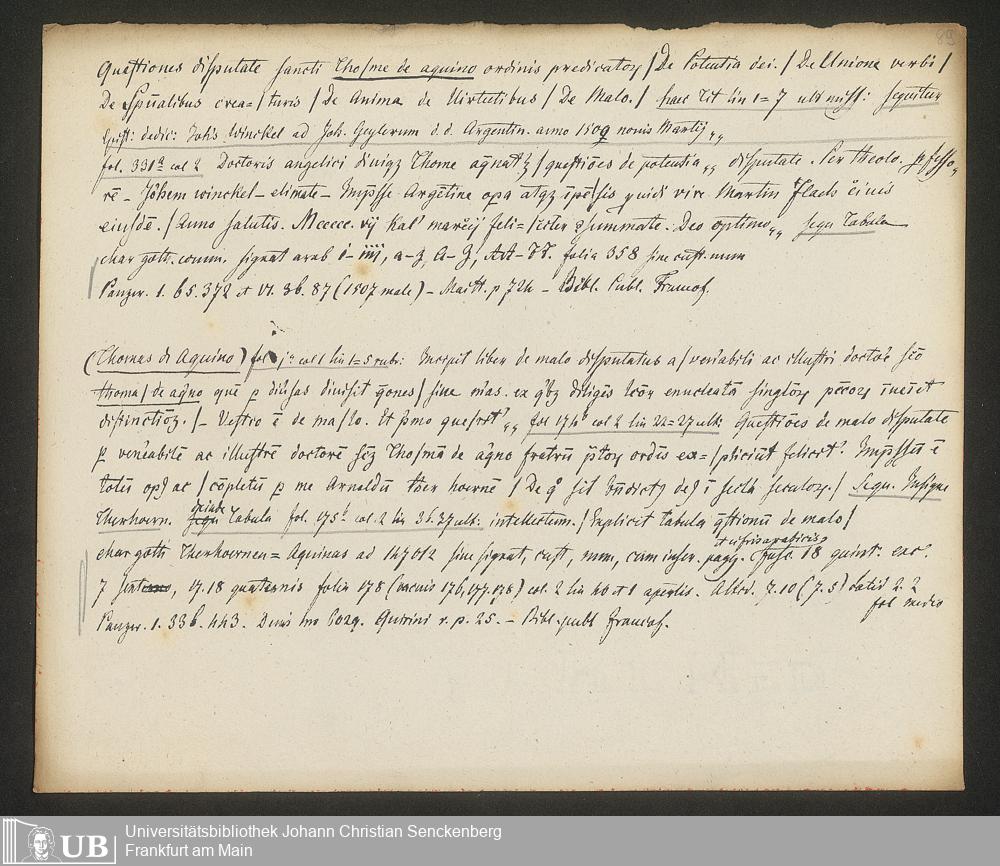 89
Questiones disputate sancti Tho/me de aquino ordinis predicatoꝝ / De Potentia dei. / De Unione verbi /
De Spūalibus crea= / turis / De Anima de Virtutibus / De Malo. / haec Tit lin 1=7 sequitur
Epist: dedic: Johis Winckel ad Joh. Geylerum d. d. Argentin. anno 1507 nonis Martij „
fol. 331a col 2 Doctoris angelici diuiqꝫ Thome / questiōes de potentia „ disputate. Per theolo.
Jōhem winckel – elimate – Argētine opa atqꝫ Martin Flach ciuis
eiusdē. / Anno salutis. Mccccc. vij kal' marcij feli= / citer ꝯsummate. Deo optimo „ sequ Tabula
char goth. comm. signat arab i – iiij, a–z, A–Z, AA–FF. folia 358 sine cust. num
Panzer. 1. 65. 372 et VI. 36. 87 (1507 male) – Maitt. p 724 – Bibl. Publ. Francof.
(Thomas de Aquino) fol 1a col 1 lin 1=5 rubr: Incipit liber de malo disputatus a / venābili ac illustri doctoē scō
thoma / de aq̄no quē p diūsas diuisit q̄ones / siue māas. ex qbꝫ diligēs enucleatā singloꝝ pccoꝝ
distinctioꝫ. / – Vestro ē de ma/lo. Et pmo „ fol 174b col 2 lin 22=27 ult: Questiōes de malo disputate
p venēabilē ac illustrē doctorē scꝫ Tho/mā de aq̄no fratrū ordīs ex= / pliciūt felicit'. Impssū ē
totū opꝰ ac / cōpletū p me Arnoldū ther hoernē / De qo sit bn̄dictꝰ deꝰ ī secla seculoꝝ. / Sequ. Insigne
Therhoern. deinde Tabula fol. 175b col. 2 lin 36.37 ult: intellectum. / Explicit tabula q̄stionū de malo /
char goth Therhoernen = Aquinas ad 147012 sine signat, cust, num, cum inscr. pagg. et cifris arabicis 18 quint: exc.
7, 17. 18 quaternis folia 178 (vacuis 176,177.178) col. 2 lin 40 et 1 apertis. 2. 2
fol medio
Panzer. 1. 336. 443. Denis Quirini r. p. 25. – Bibl. publ Francof.
UB
Universitätsbibliothek Johann Christian Senckenberg
Frankfurt am Main